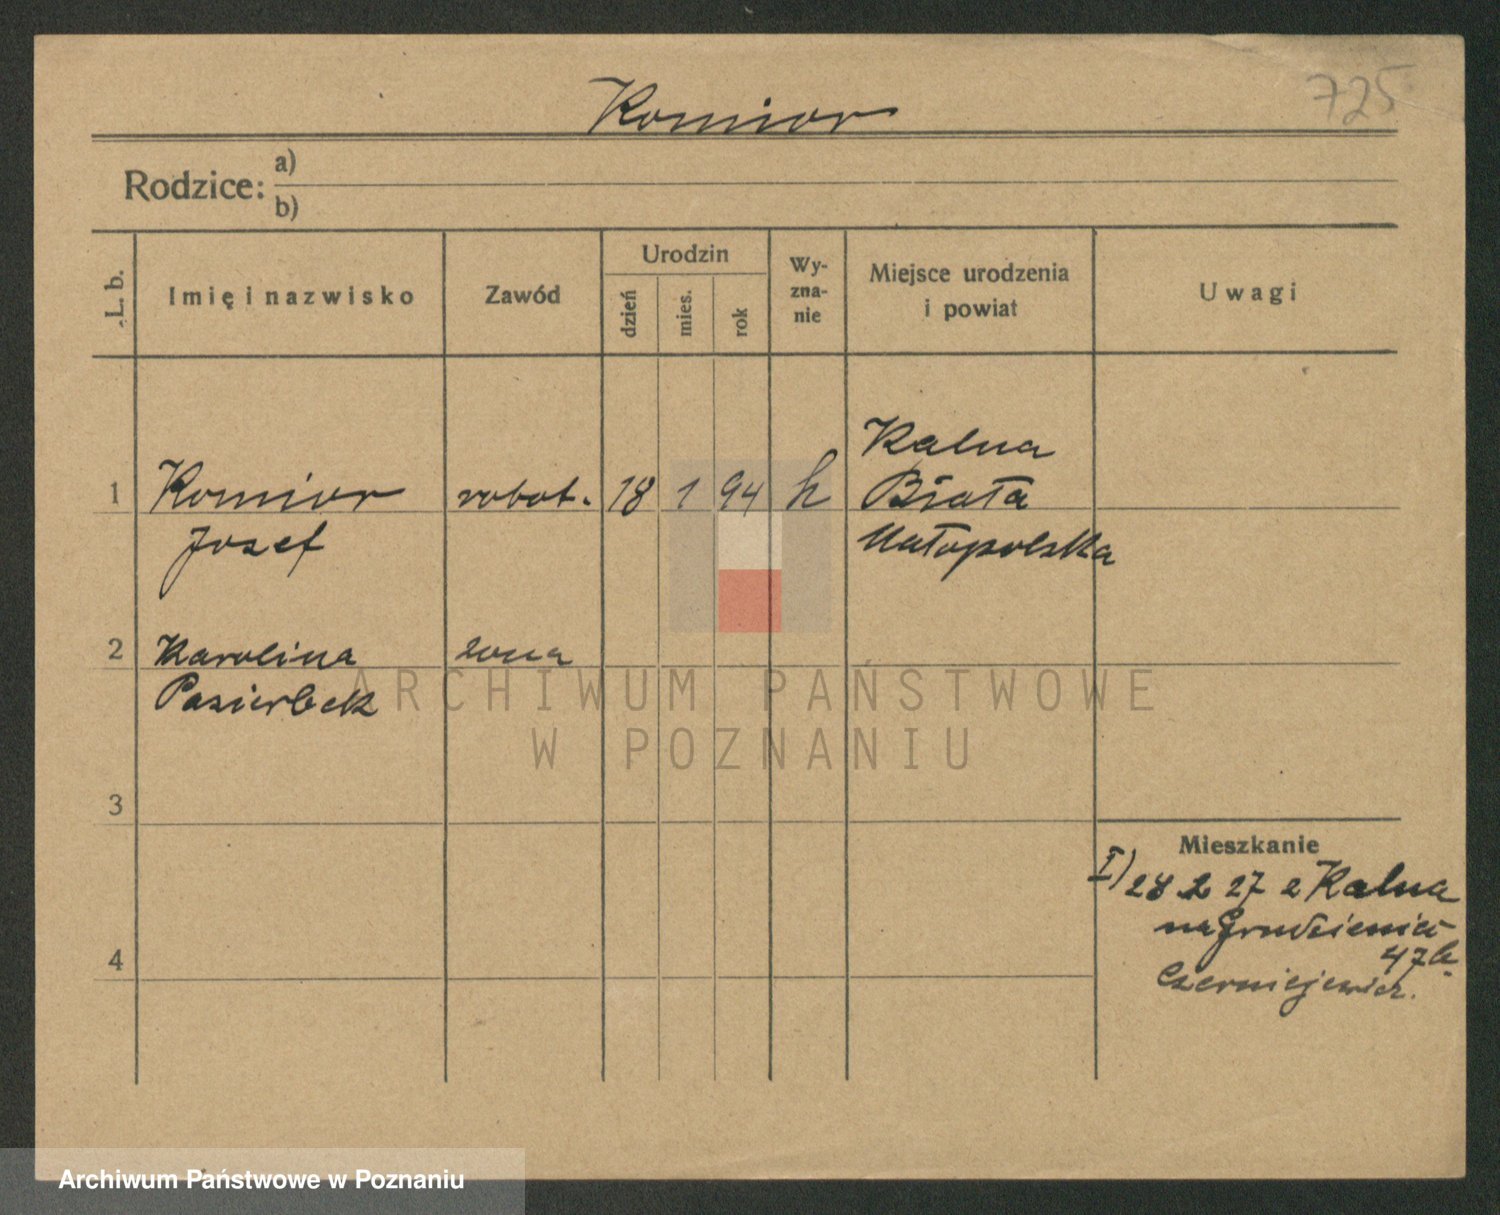 725
Komior
Rodzice: a)
b)
L. b.
Imię i nazwisko
Zawód
Urodzin
dzień
mies.
rok
Wy-
zna-
nie
Miejsce urodzenia
i powiat
Uwagi
1
Komior
Josef
robot.
18
1
94
k
Kalna
Biała
Małopolska
2
Karolina
Pasierbek
żona
3
4
Mieszkanie
I) 28 2 27 z Kalna
na Grudzieniec
47a
Czerniejewicz.
ARCHIWUM PAŃSTWOWE
W POZNANIU
Archiwum Państwowe w Poznaniu